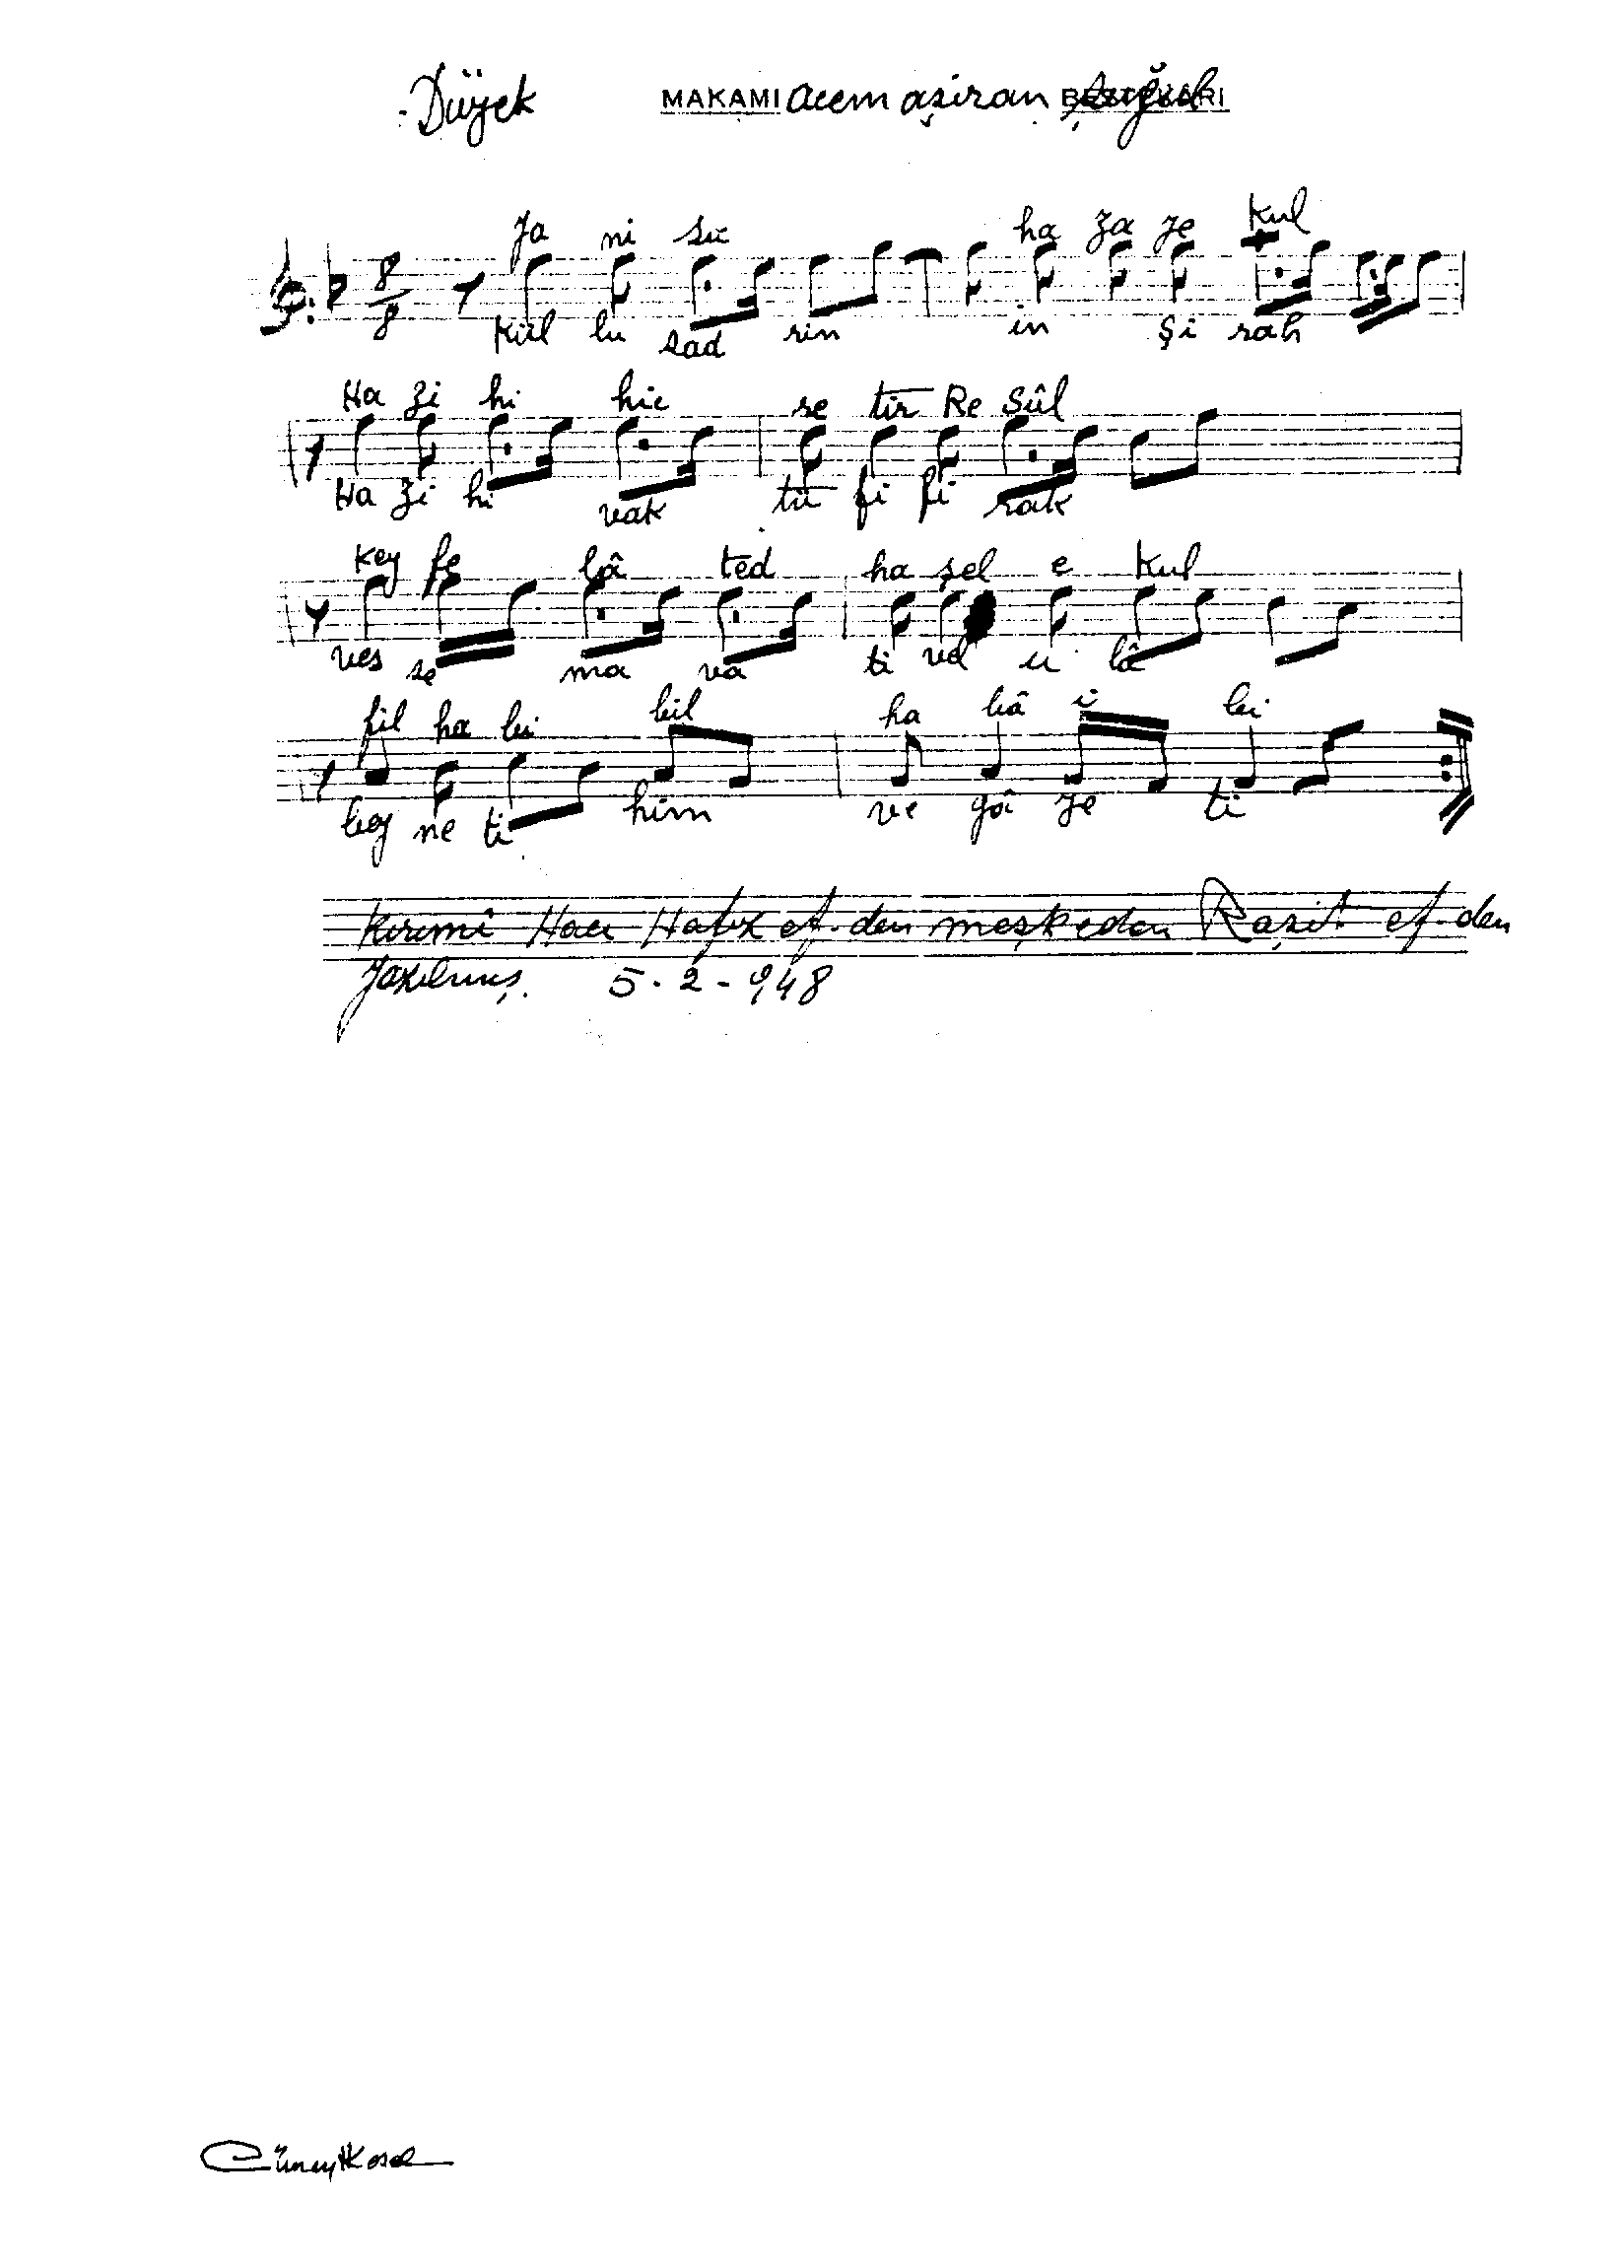 Düyek MAKAMI Acem aşiran BESTEKÂRI Şuğul
8/8
Ja ni sü ha za ye kul
Kül lu sad rin in şi rah
Ha zi hi hic re tir Re sûl
Ha zi hi vak tü fi fi rak
key fe lâ ted ha şel e kul
ves se ma va ti vel u lâ
fil ha bi bil ha bâ i bi
bey ne ti him ve gâ ye ti
Kırımî Hacı Hafız ef-den meşkeden Raşit ef-den
Yazılmış. 5-2-948